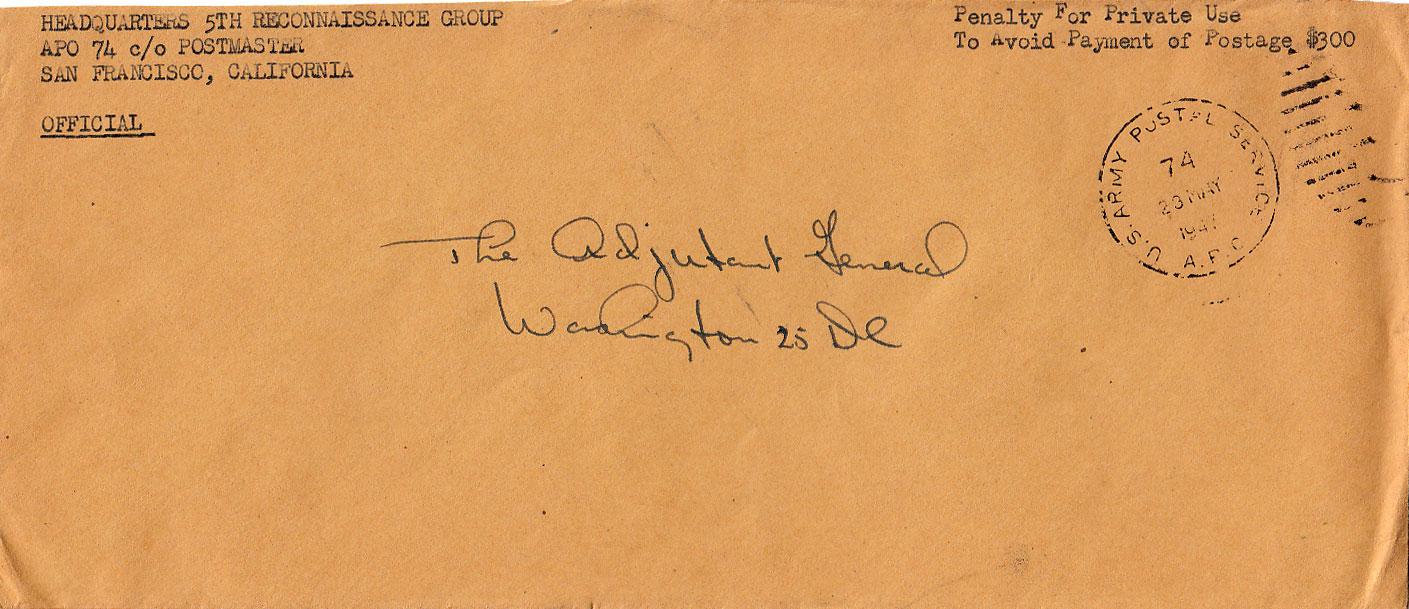 HEADQUARTERS 5TH RECONNAISSANCE GROUP
APO 74 c/o POSTMASTER
SAN FRANCISCO, CALIFORNIA
OFFICIAL
Penalty For Private Use
To Avoid Payment of Postage $300
U.S. ARMY POSTAL SERVICE
74
23 MAY
1947
A.P.O.
The Adjutant General
Washington 25 DC